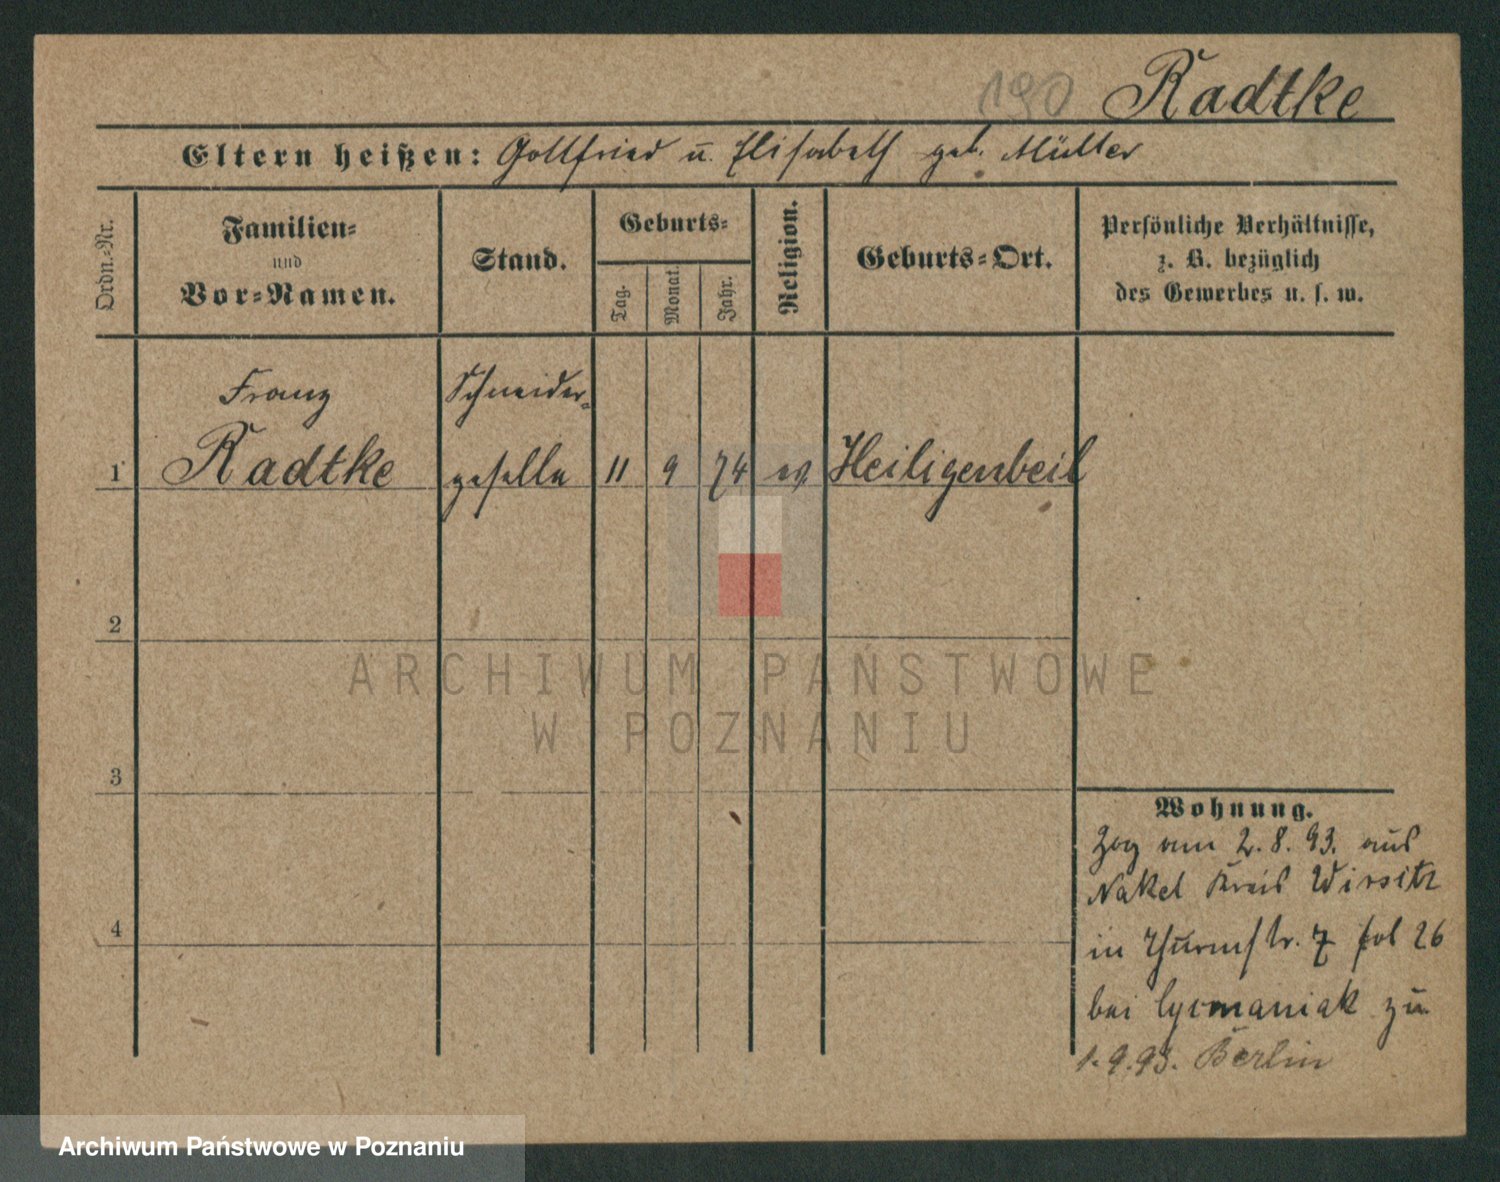 190 Radtke
Eltern heißen: Gottfried u. Elisabeth geb. Müller
Ordn.-Nr.
Familien-
und
Vor-Namen.
Stand.
Geburts-
Tag.
Monat.
Jahr.
Religion.
Geburts-Ort.
Persönliche Verhältnisse,
z. B. bezüglich
des Gewerbes u. s. w.
Franz Schneider-
1 Radtke geselle 11 9 74 ev Heiligenbeil
2
3
4
Wohnung.
Zog am 2. 8. 93. aus
Nakel Kreis Wirsitz
in Thurmstr. 7 fol 26
bei zu
1. 9. 93. Berlin
ARCHIWUM PAŃSTWOWE
W POZNANIU
Archiwum Państwowe w Poznaniu